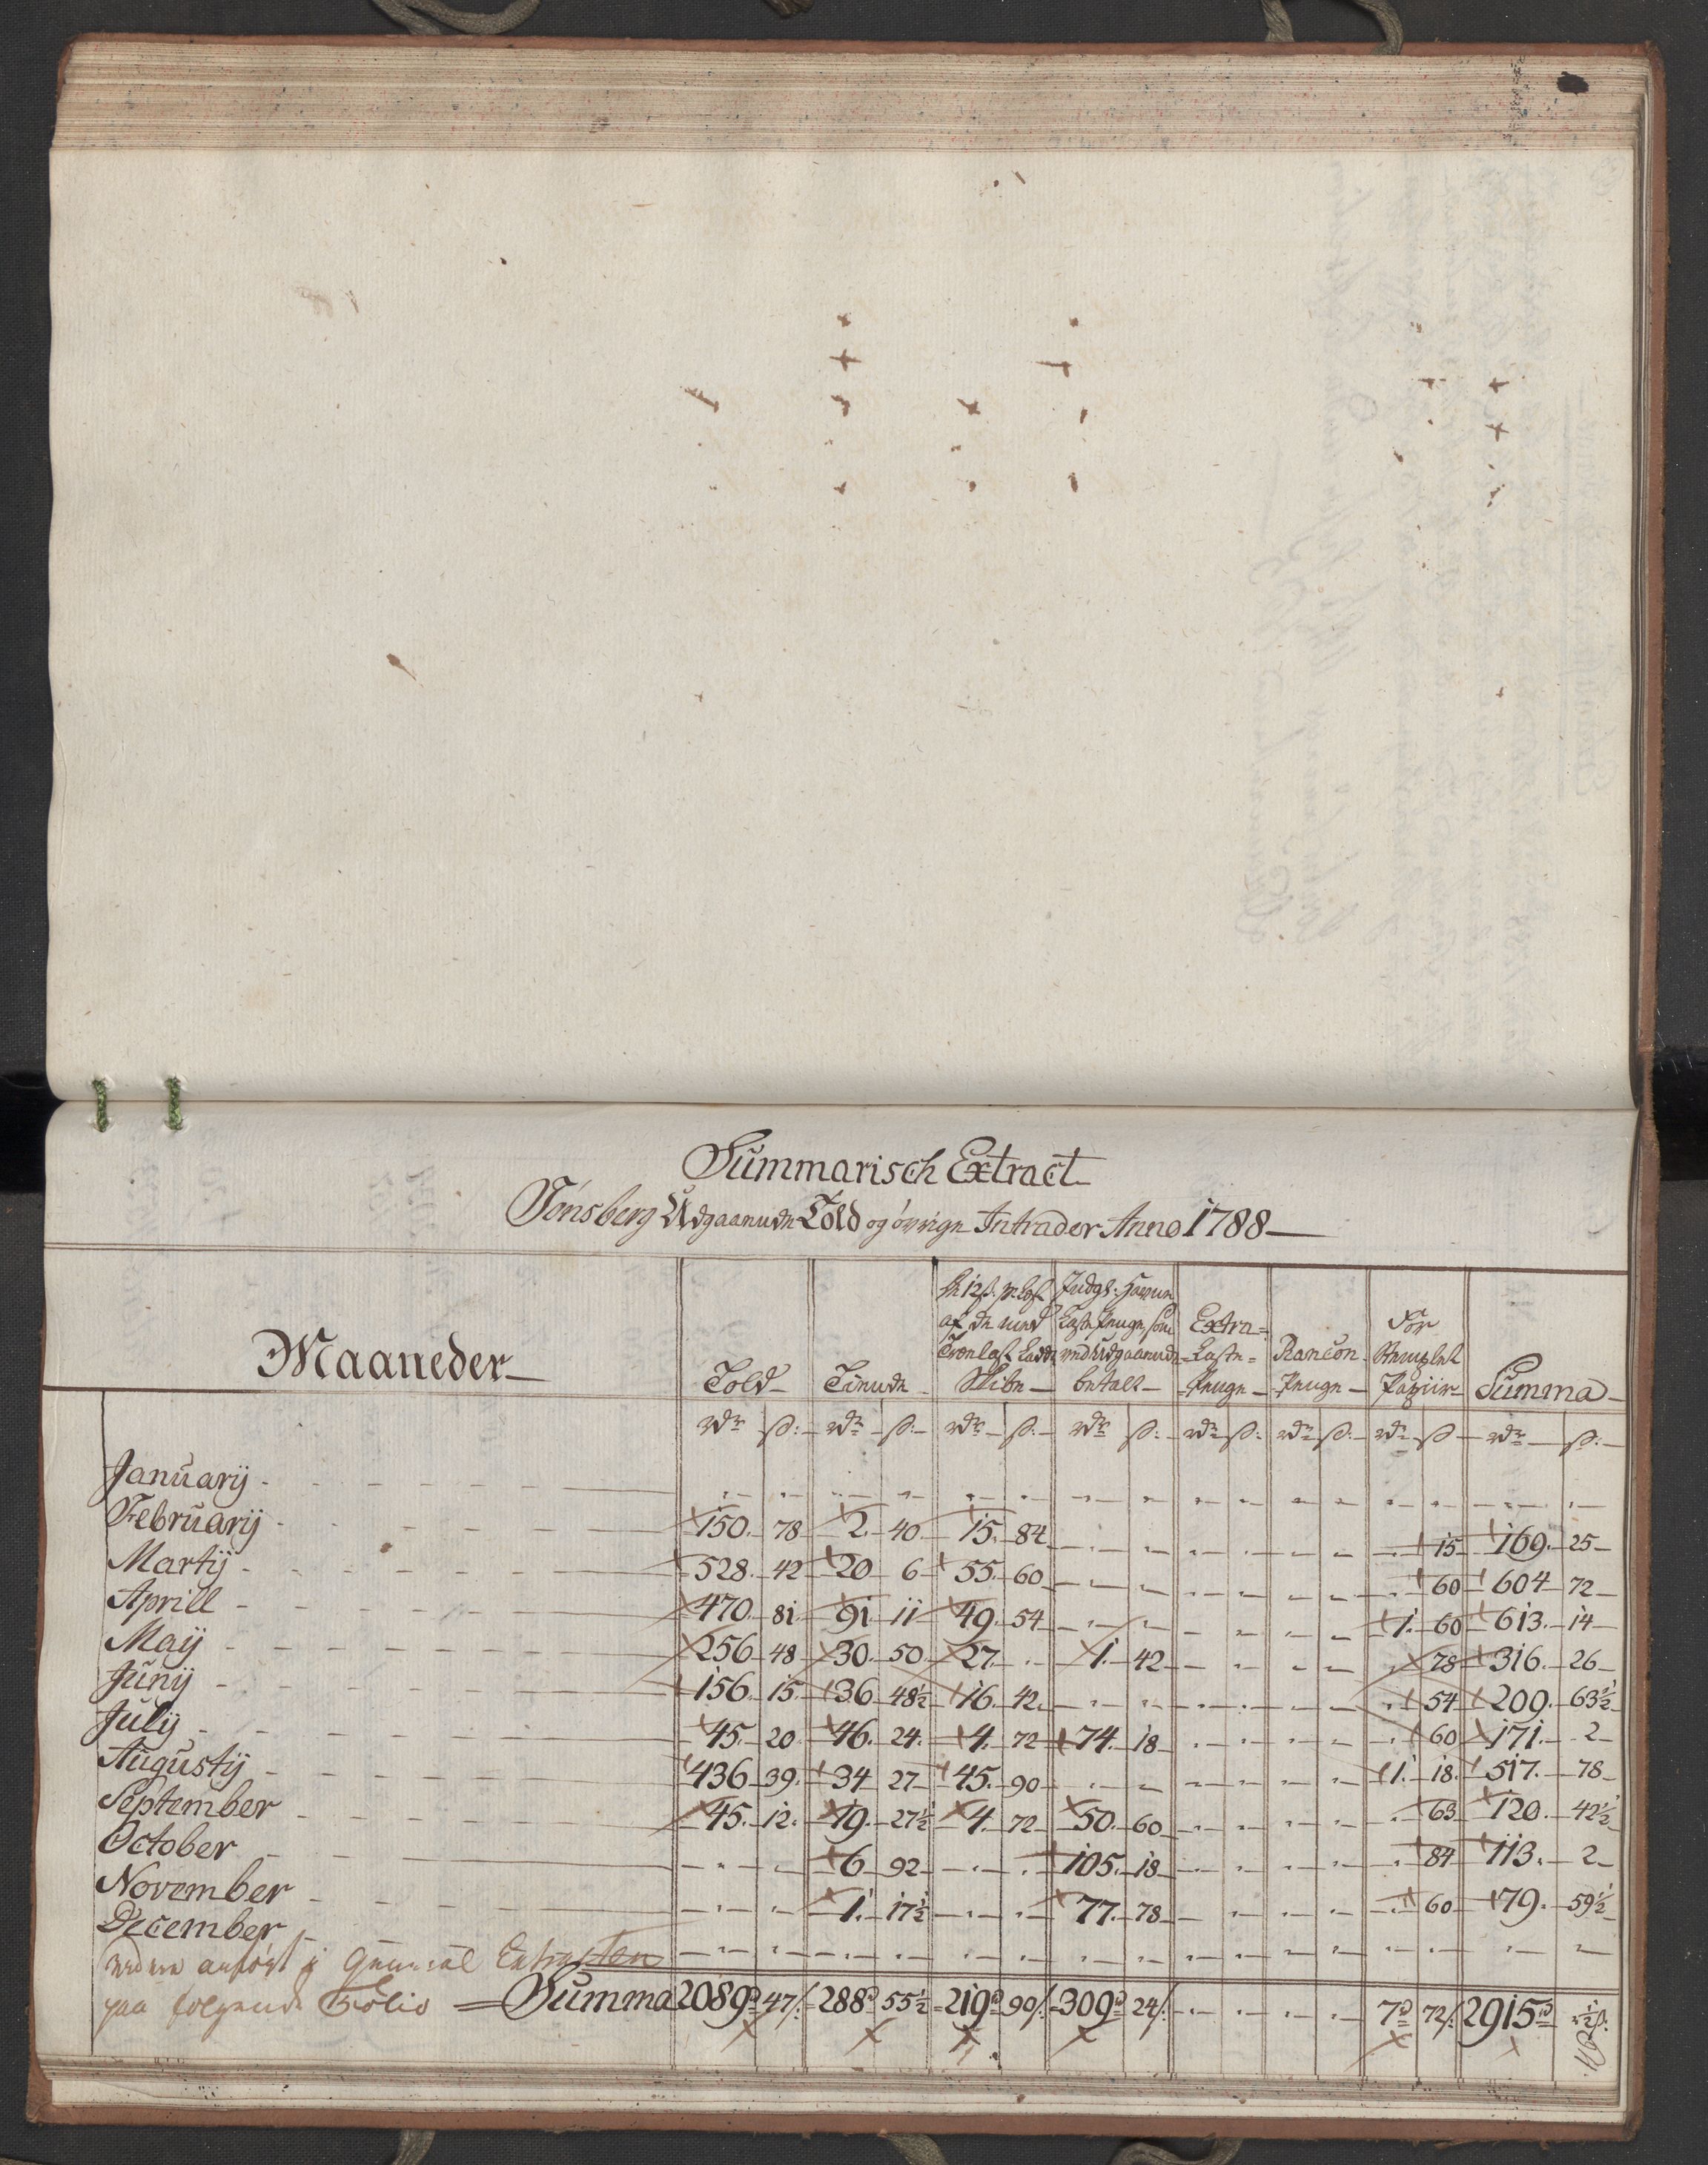 Summarisch Extract
Tönsberg Udgaaende Told og övrige Intrader Anno 1788
Maaneder
Told
Tiende
à 12 ß. pr. Læst af de med Trælast Ladde Skibe
Indgl: Hafne Læste Penge, som ved Udgaaende betalt
Extra= Læste= Penge
Rancon Penge
For Stemplet Papiir
Summa
rdr ß: rdr ß: rdr ß: rdr ß: rdr ß: rdr ß: rdr ß rdr ß:
Januarij - - - - - - - - - - - - - - - -
Februarij 150. 78 2. 40 15. 84 - - - - - - - 15 169. 25
Martij 528. 42 20 6 55. 60 - - - - - - - 60 604 72
Aprill 470. 81 91 11 49. 54 - - - - - - 1. 60 613. 14
Maij 256 48 30. 50 27. - 1. 42 - - - - - 78 316. 26
Junij 156. 15 36 48½ 16. 42 - - - - - - - 54 209. 63½
Julij 45. 20 46. 24. 4. 72 74. 18 - - - - - 60 171. 2
Augustij 436 39. 34 27 45. 90 - - - - - - 1. 18. 517. 78
September 45. 12. 19. 27½ 4. 72 50. 60 - - - - - 63 120. 42½
October - - 6 92 - - 105. 18 - - - - - 84 113. 2
November - - 1. 17½ - - 77. 78 - - - - - 60 79. 59½
December - - - - - - - - - - - - - - - -
anført i General Extracten
paa folgende Folio
Summa 2089 47 288 55½ 219 90 309 24 - - - - 7 72 2915